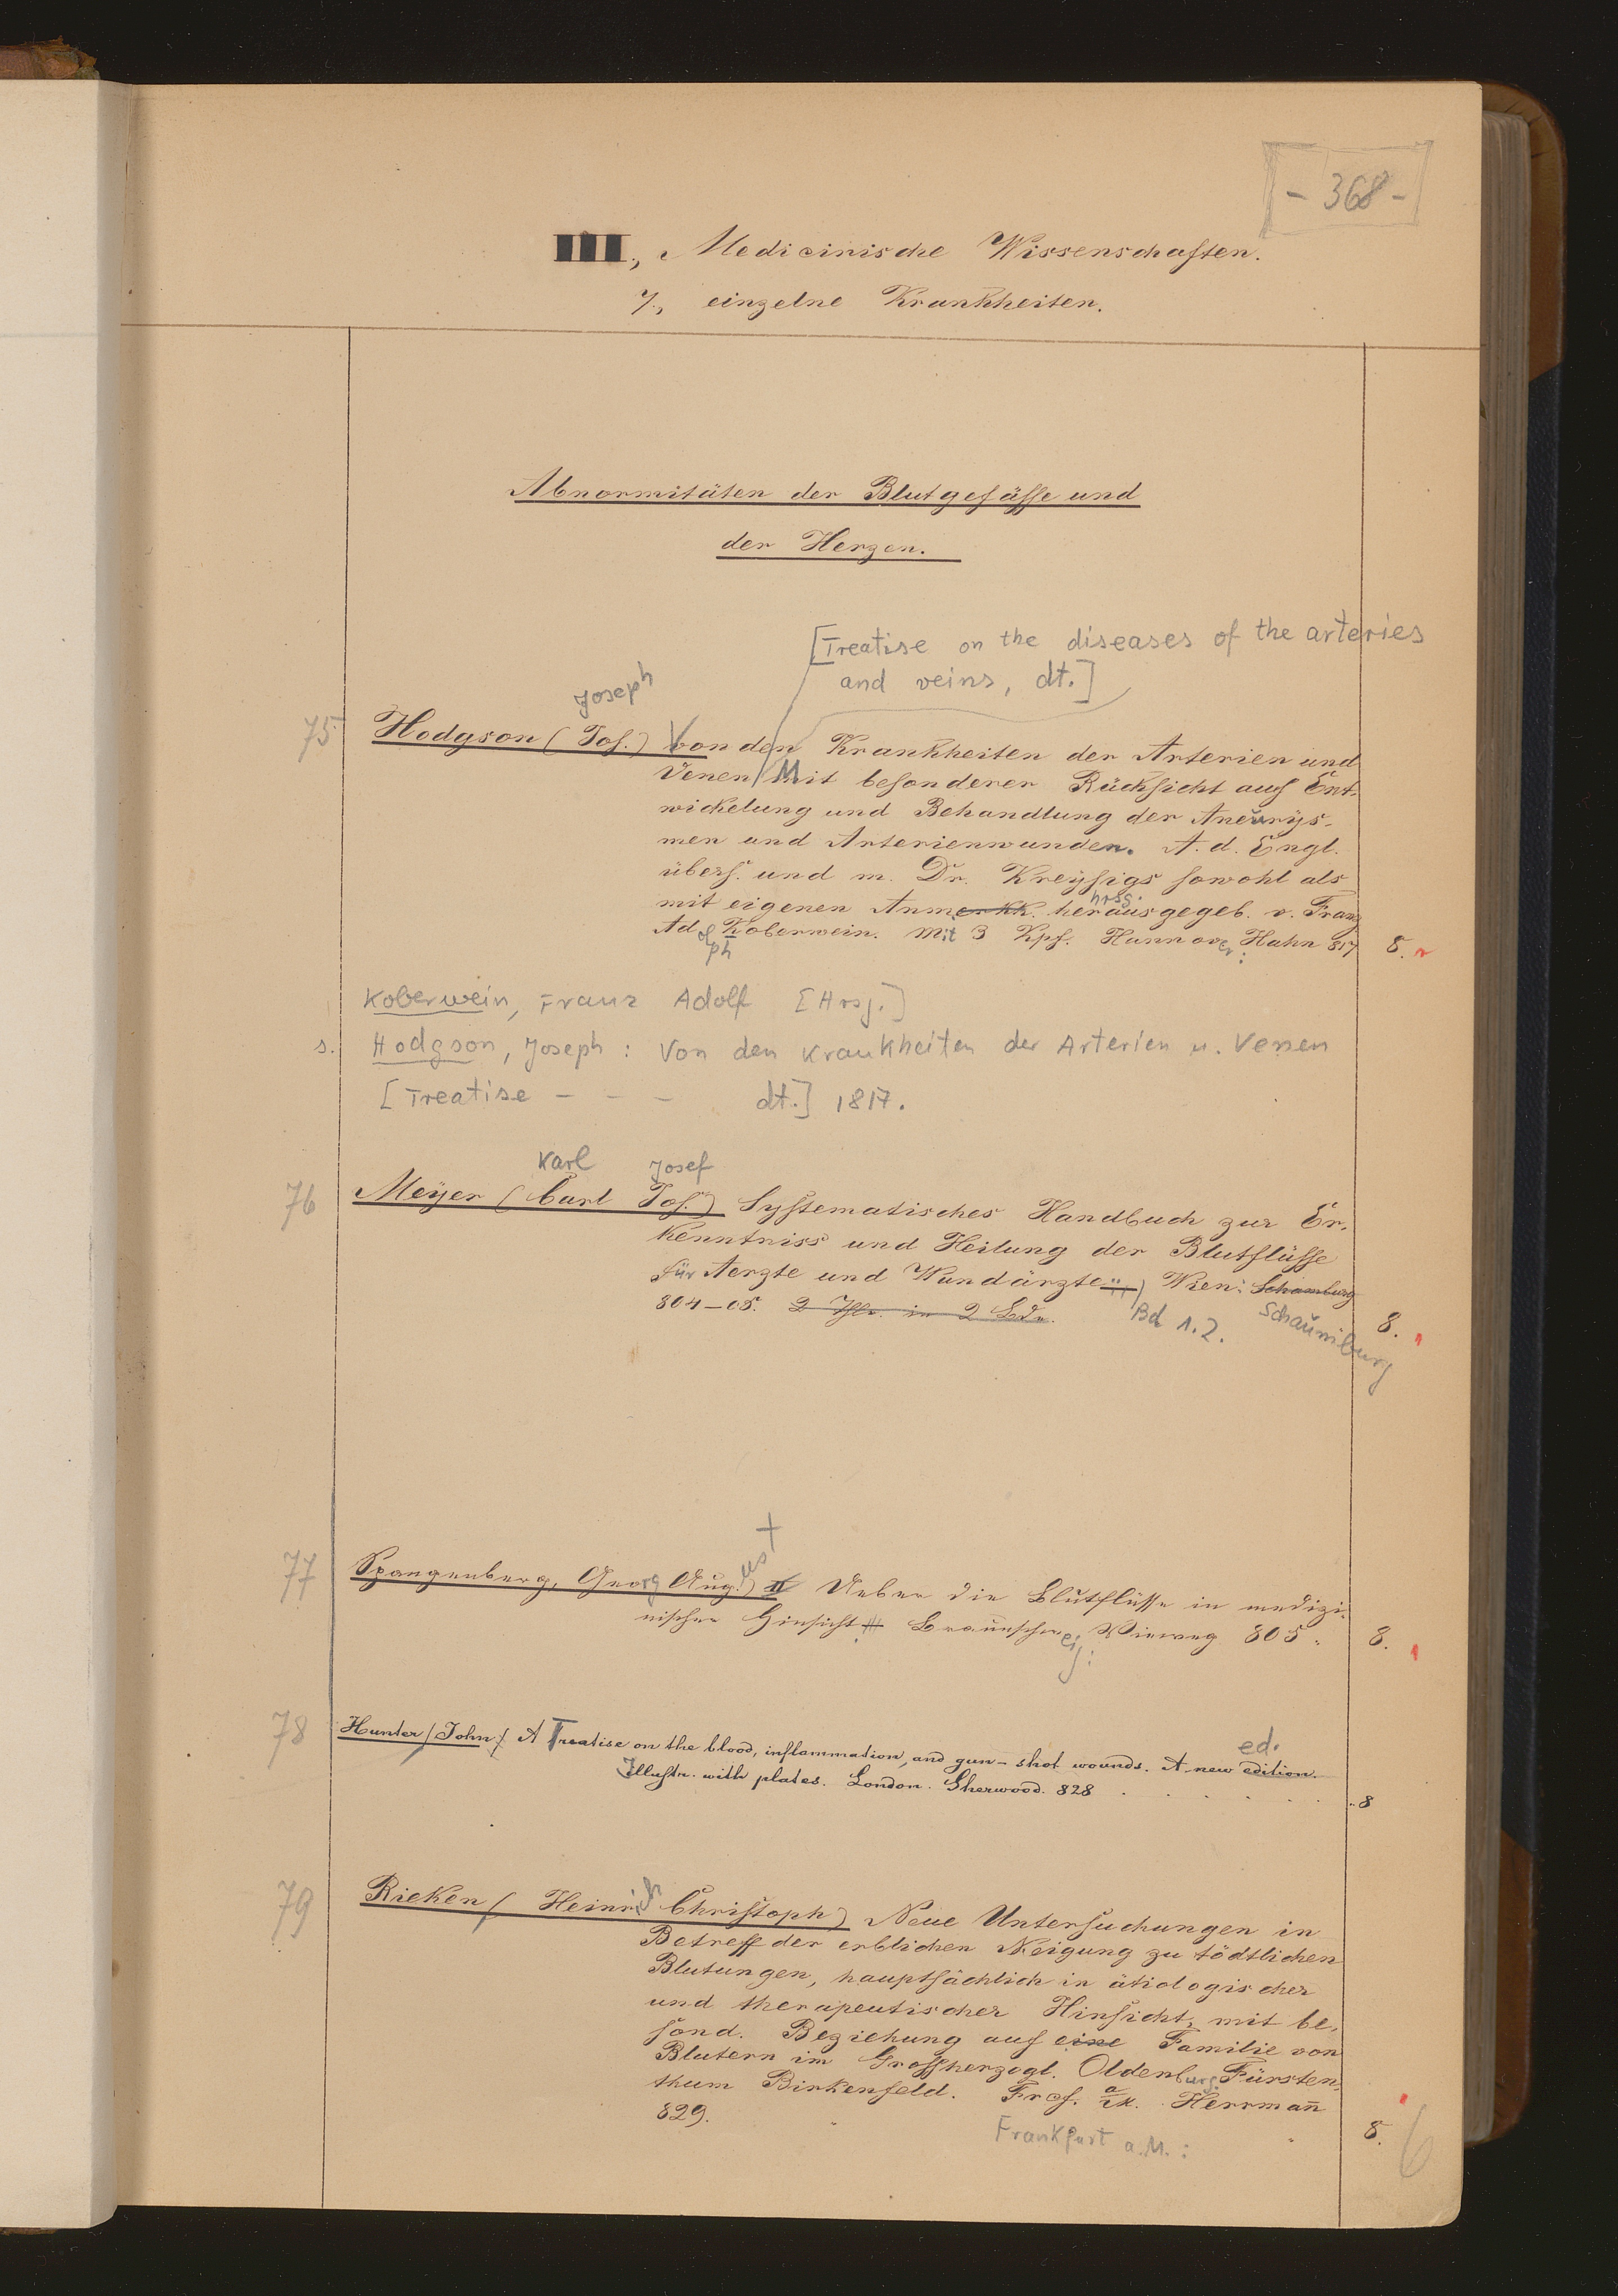 - 368 -
III., Medicinische Wissenschaften.
7., einzelne Krankheiten.
Abnormitäten der Blutgefäſſe und
der Herzen.
[Treatise on the diseases of the arteries
and veins, dt.]
Joseph
75 Hodgson (Joſ.) Von den Krankheiten der Arterien und
Venen Mit beſonderer Rückſicht auf Ent-
wickelung und Behandlung der Aneurys-
men und Arterienwunden. A. d. Engl.
überſ. und m. Dr. Kreyſigs ſowohl als
mit eigenen Anmerkk. herausgegeb. v. Franz
hrsg.
Adolph Koberwein. Mit 3 Kpf. Hannover: Hahn 817 8.
Koberwein, Franz Adolf [Hrsg.]
s. Hodgson, Joseph: Von den Krankheiten der Arterien u. Venen
[Treatise - - - dt.] 1817.
Karl Josef
76 Meyer (Carl Joſ.) Syſtematisches Handbuch zur Er-
kenntniss und Heilung der Blutflüſſe
für Aerzte und Wundärzte Wien: Schamburg
804-05. 2 Thle. in 2 Bdn. Bd 1.2. Schaumburg 8.
77 Spangenberg, Georg August Ueber die Blutflüsse in medizi-
nischer Hinsicht. Braunschweig: Vieweg 805. 8.
78 Hunter (John) A Treatise on the blood, inflammation, and gun-shot wounds. A new edition.
ed.
Illuſtr. with plates. London. Sherwood. 828 . . . . . . 8
79 Rieken (Heinrich Chriſtoph) Neue Unterſuchungen in
Betreff der erblichen Neigung zu tödtlichen
Blutungen, hauptſächlich in ätiologischer
und therapeutischer Hinſicht, mit be-
ſond. Beziehung auf eine Familie von
Blutern im Groſſherzogl. Oldenburg. Fürsten-
thum Birkenfeld. Frcf. a/M. Herrmañ
829. 8.
Frankfurt a.M.: 6